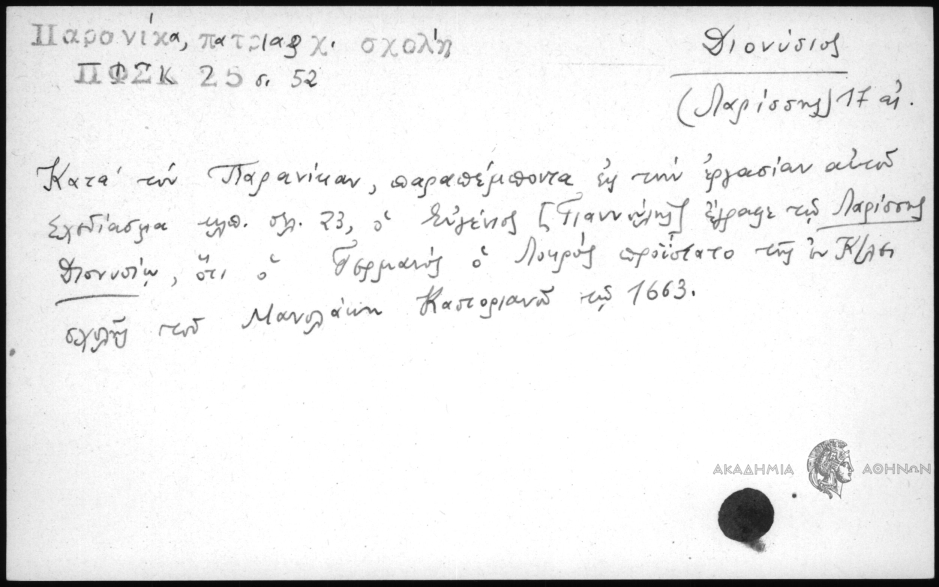 Παρανίκα, πατριαρχ. σχολή
ΠΦΣΚ 25 σ. 52
Διονύσιος
(Λαρίσσης) 17 αἰ.
Κατὰ τὸν Παρανίκαν, παραπέμποντα εἰς τὴν ἐργασίαν αὐτοῦ
Σχεδίασμα κλπ. σελ. 23, ὁ Εὐγένιος [Γιαννούλης] ἔγραφε τῷ Λαρίσσης
Διονυσίῳ, ὅτι ὁ Γερμανὸς ὁ Λοκρὸς προΐστατο τῆς ἐν Κ/λει
σχολῆς τοῦ Μανολάκη Καστοριανοῦ τῷ 1663.
ΑΚΑΔΗΜΙΑ ΑΘΗΝΩΝ